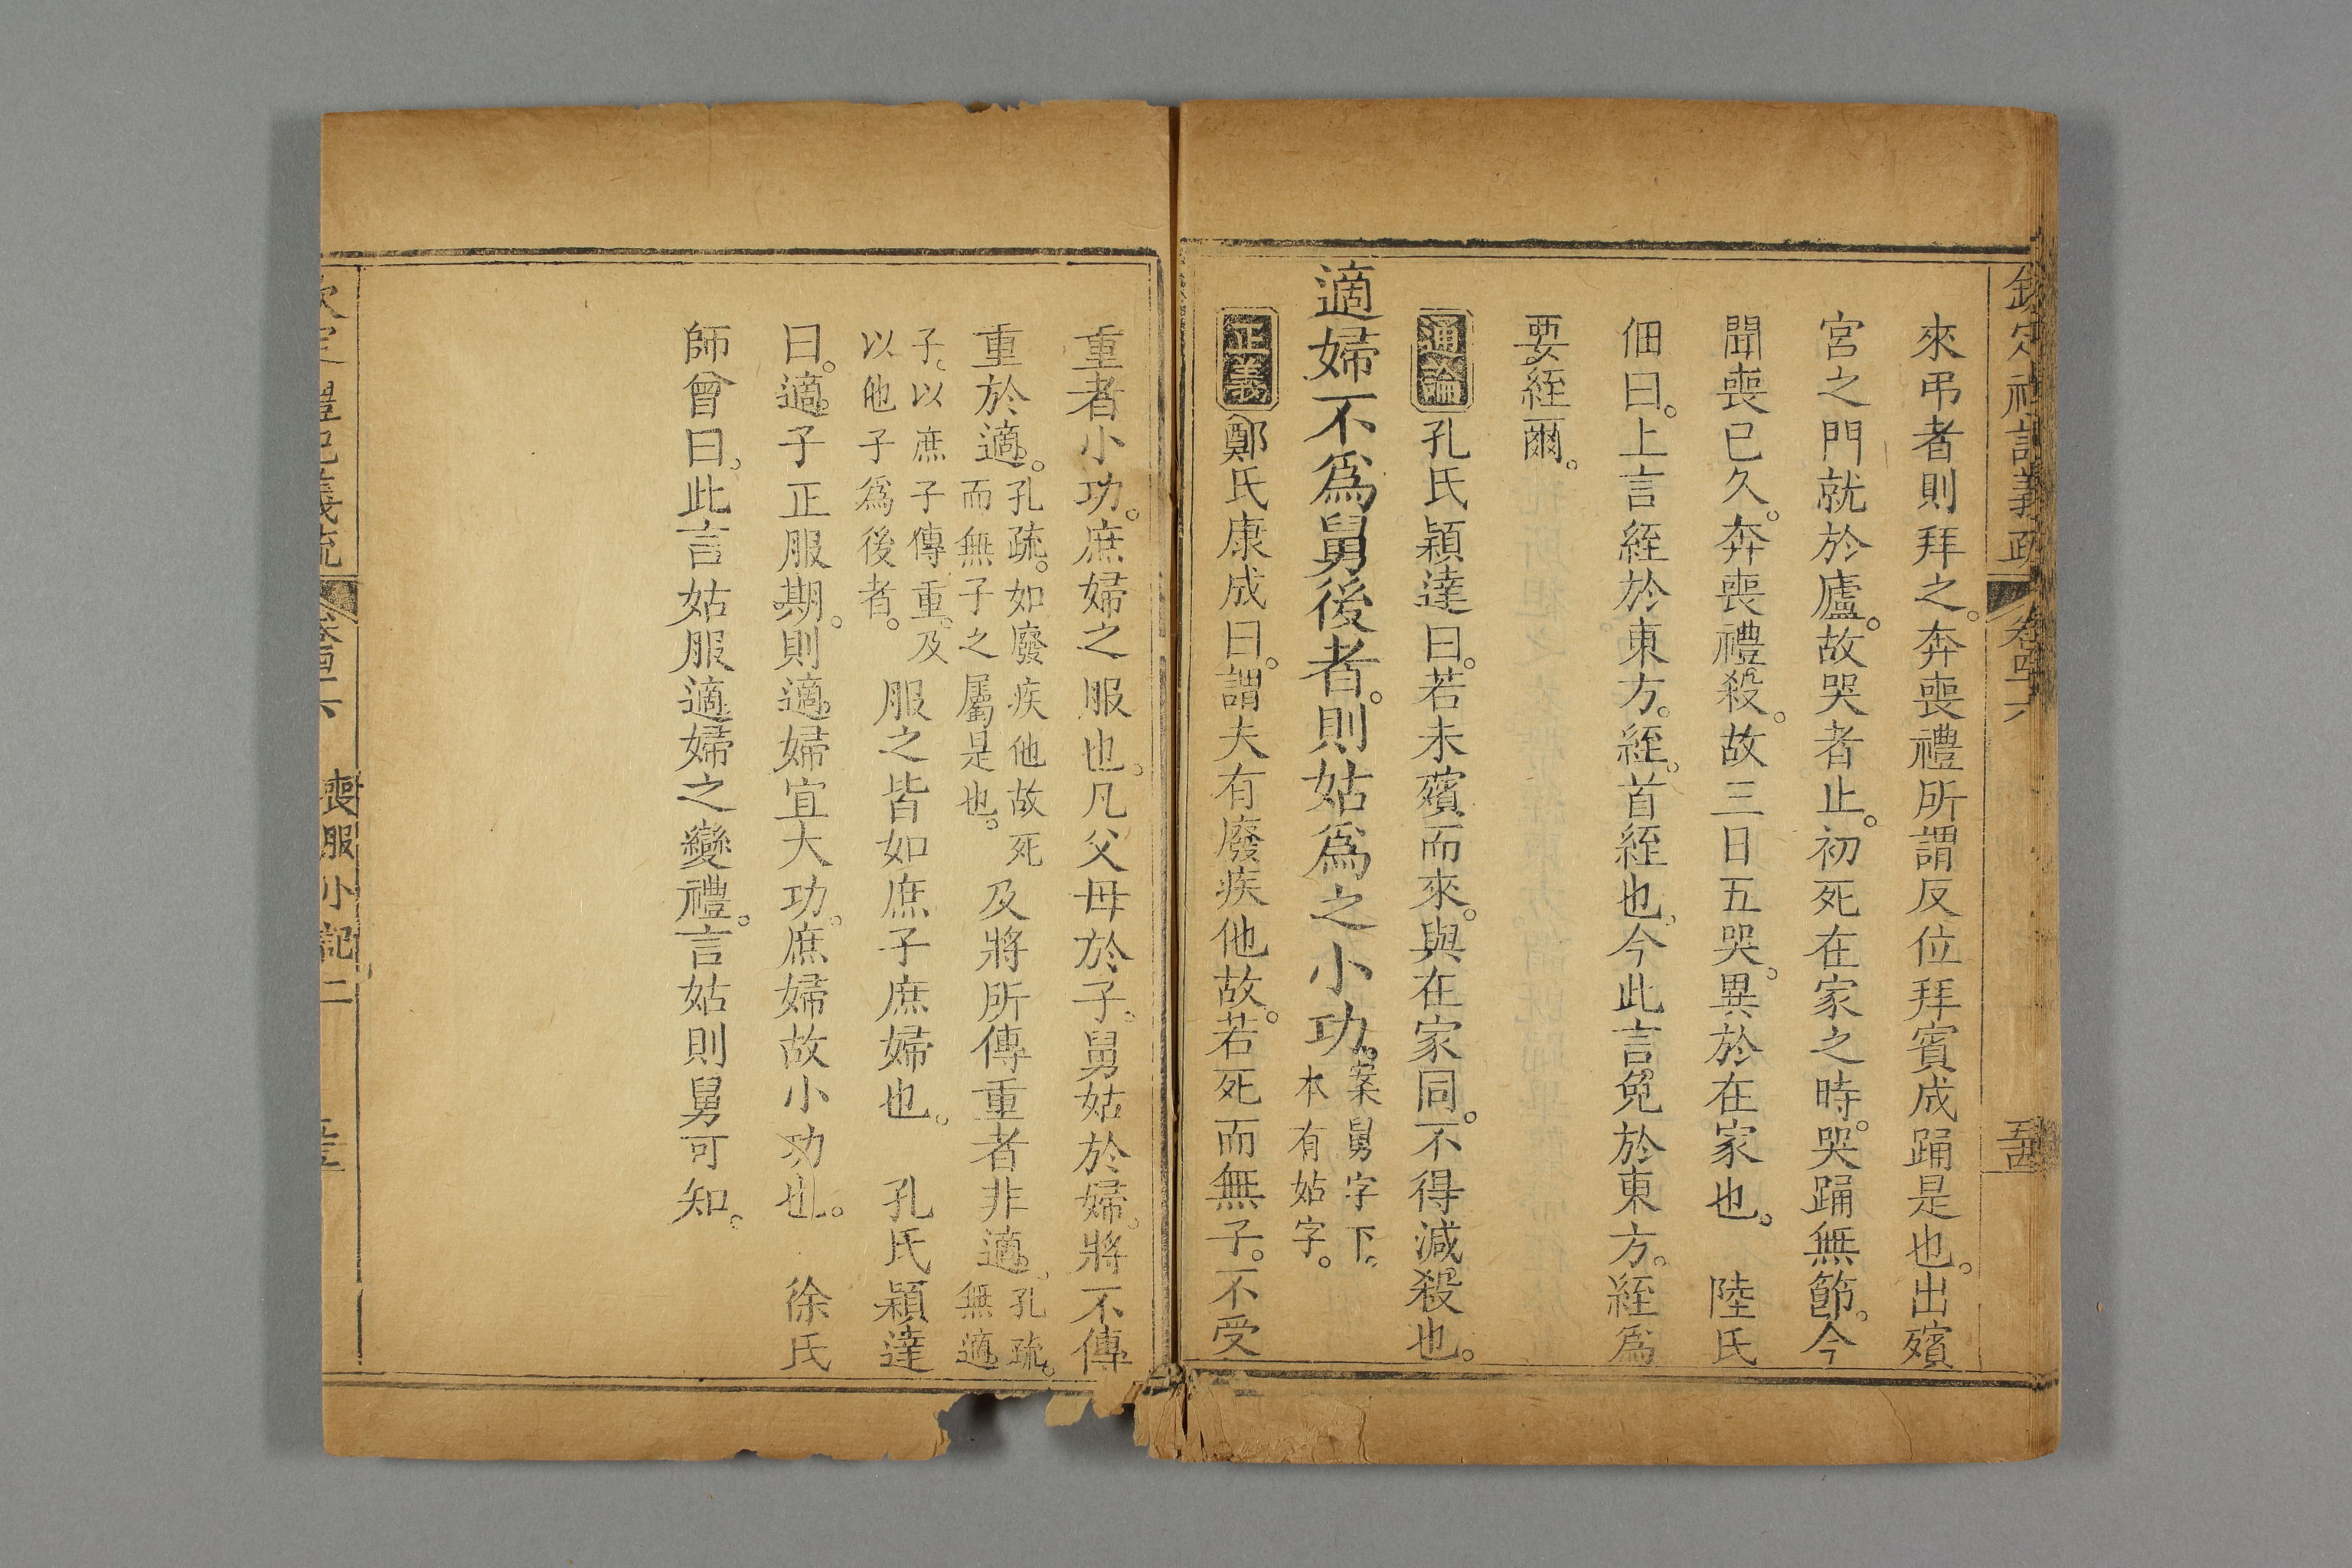 欽定禮記義疏 卷四十六 五十四
來弔者則拜之。奔喪禮所謂反位拜賓成踊是也。出殯
宮之門就於廬。故哭者止。初死在家之時。哭踊無節。今
聞喪已久。奔喪禮殺。故三日五哭。異於在家也。　陸氏
佃曰。上言絰於東方。絰。首絰也。今此言免於東方。絰爲
要絰爾。
通論 孔氏穎達曰。若未殯而來。與在家同。不得減殺也。
適婦不爲舅後者。則姑爲之小功。案舅字下。本有姑字。
正義 鄭氏康成曰。謂夫有廢疾他故。若死而無子。不受
重者小功。庶婦之服也。凡父母於子。舅姑於婦。將不傳
重於適。孔疏。如廢疾他故死而無子之屬是也。及將所傳重者非適。孔疏。無適
子。以庶子傳重。及以他子爲後者。服之皆如庶子庶婦也。　孔氏穎達
曰。適子正服期。則適婦宜大功。庶婦故小功也。　徐氏
師曾曰。此言姑服適婦之變禮。言姑則舅可知。
欽定禮記義疏 卷四十六 喪服小記二